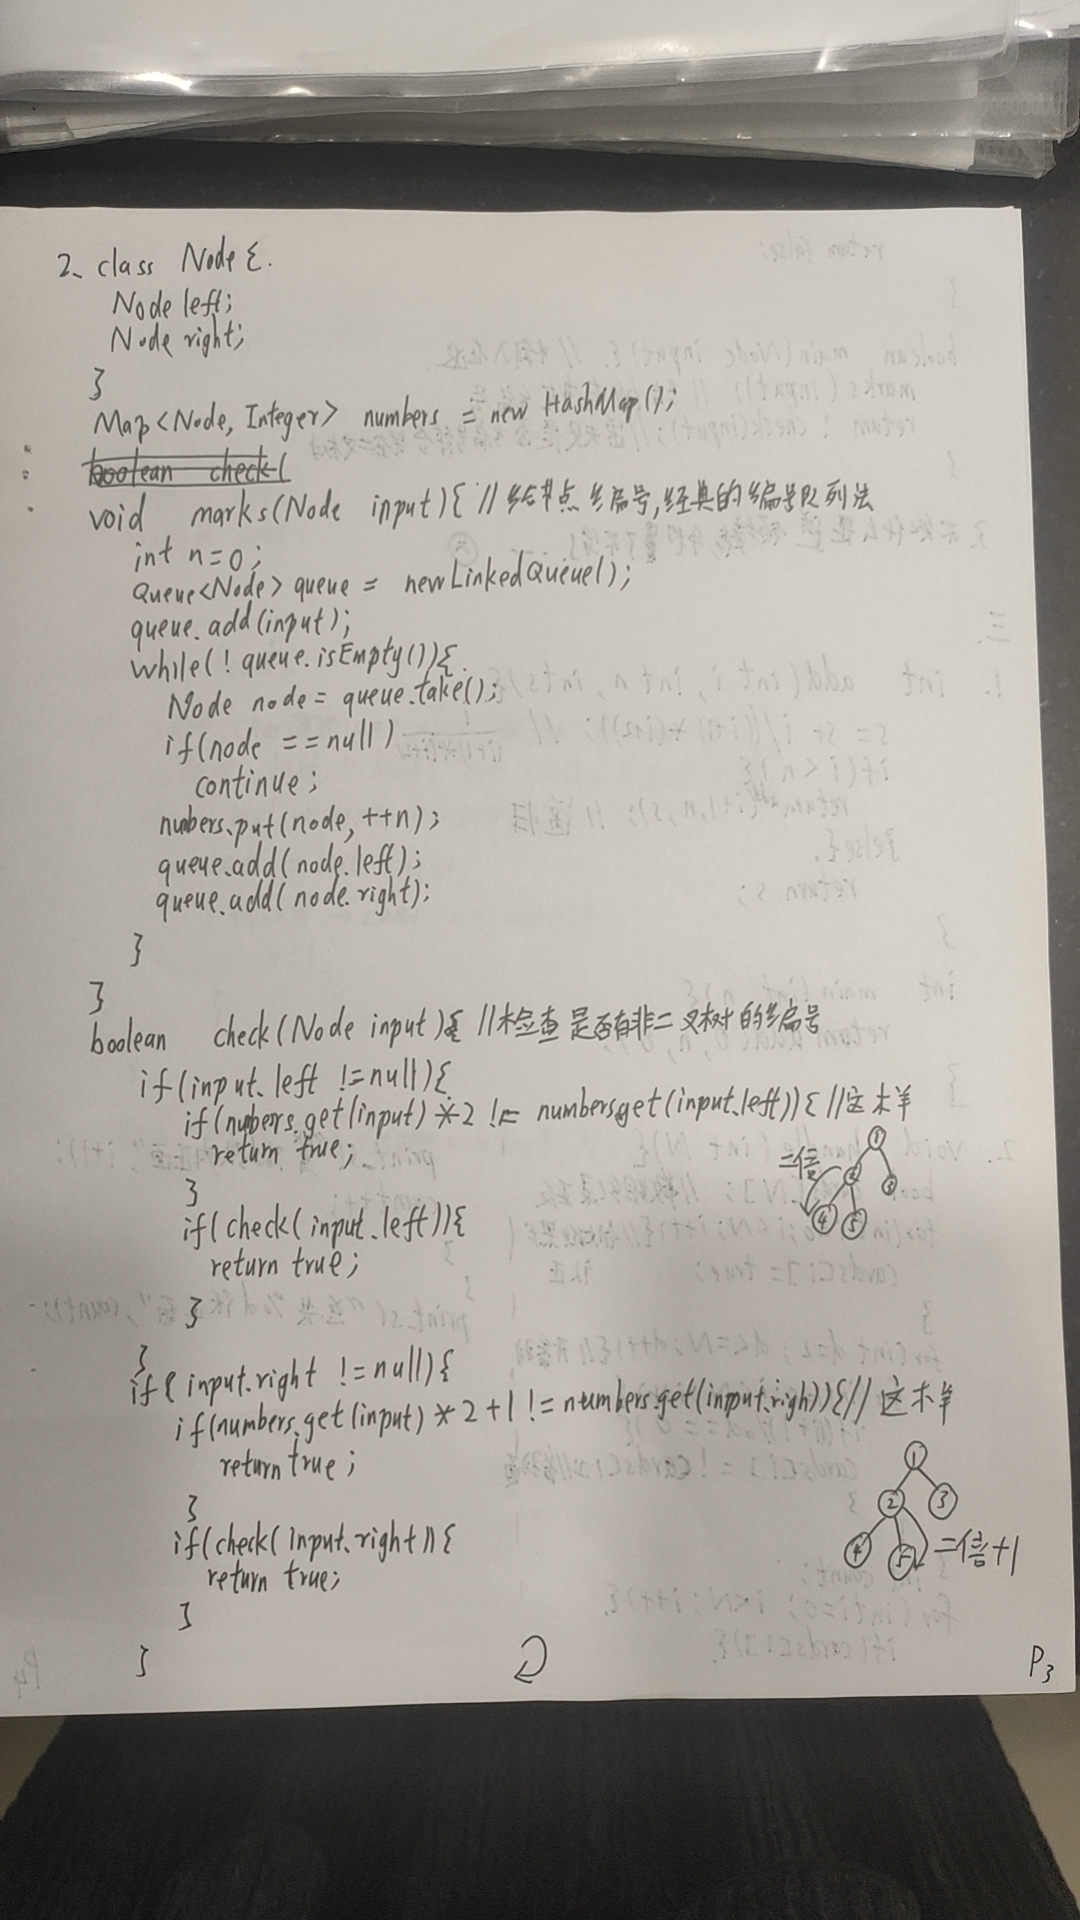 2、class Node {.
Node left;
Node right;
}
Map<Node, Integer> numbers = new HashMap();
boolean check(
void marks(Node input){ //给节点编号,经典的编号队列法
int n=0;
Queue<Node> queue = new LinkedQueue();
queue.add(input);
while(! queue.isEmpty()){.
Node node = queue.take();
if(node ==null)
continue;
nubers.put(node, ++n);
queue.add(node.left);
queue.add(node.right);
}
}
boolean check(Node input){ //检查是否有非二叉树的编号
if(input.left !=null){
if(nubers.get(input) *2 != numbers.get(input.left)){ //这样
return true;
1
二倍
2
3
4
5
}
if(check(input.left)){
return true;
}
}
if( input.right !=null){
if(numbers.get(input) * 2+1 !=numbers.get(input.righ)){// 这样
return true;
1
2
3
4
5
二倍+1
}
if(check(input.right)){
return true;
}
}
P3